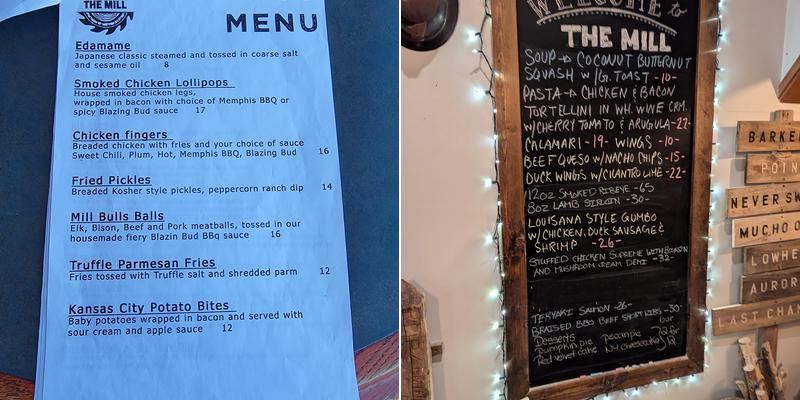 THE MILL
MENU
Edamame
Japanese classic steamed and tossed in coarse salt
and sesame oil 8
Smoked Chicken Lollipops
House smoked chicken legs,
wrapped in bacon with choice of Memphis BBQ or
spicy Blazing Bud sauce 17
Chicken fingers
Breaded chicken with fries and your choice of sauce
Sweet Chili, Plum, Hot, Memphis BBQ, Blazing Bud 16
Fried Pickles
Breaded Kosher style pickles, peppercorn ranch dip 14
Mill Bulls Balls
Elk, Bison, Beef and Pork meatballs, tossed in our
housemade fiery Blazin Bud BBq sauce 16
Truffle Parmesan Fries
Fries tossed with Truffle salt and shredded parm 12
Kansas City Potato Bites
Baby potatoes wrapped in bacon and served with
sour cream and apple sauce 12
WELCOME to
THE MILL
SOUP → COCONUT BUTTERNUT
SQUASH W/G.TOAST -10-
PASTA → CHICKEN & BACON
TORTELLINI IN WH. WINE CRM.
W/CHERRY TOMATO & ARUGULA-27-
CALAMARI -19- WINGS -10-
BEEF QUESO W/NACHO CHIPS -15-
DUCK WINGS W/CILANTRO LIME -22-
12oz SMOKED RIBEYE -65
8oz LAMB SIRLOIN -30-
LOUISANA STYLE GUMBO
W/CHICKEN, DUCK SAUSAGE &
SHRIMP -26-
STUFFED CHICKEN SUPREME WITH BOURSIN
AND MUSHROOM CREAM DEMI -32-
TERIYAKI SALMON -26-
BRAISED BBQ BEEF SHORT RIBS -30-
Desserts
pumpkin pie pecan pie
Red velvet cake NY cheesecake
12
BARKE
POIN
NEVER SW
MUCHO O
LOWHE
AUROR
LAST CHAN